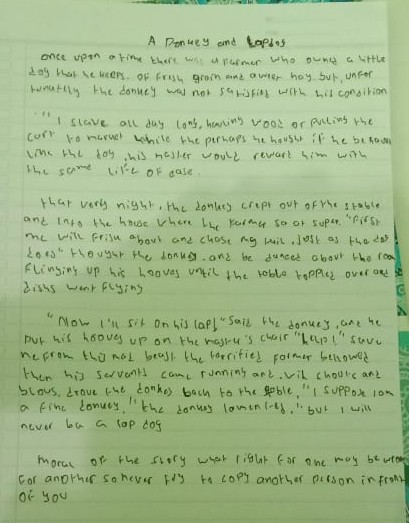 A Donkey and Lapdog
once upon a time there was a farmer who owned a little
dog that he keeps. of fresh grain and hay. but, unfor
tunattly the donkey was not satisfied with his condition
"I slave all day long, hauling wood or pulling the
cart to market while the perhaps he thought if he be
like the dog, his master would reward him with
the same life of ease.
that very night, the donkey crept out of the stable
and into the house where the farmer sat at super. "First
me will frisk about and chase my tail, just as the dog
does" thought the donkey. and he danced about the room
flinging up his hooves until the table toppled over and
dishs went flying
"Now I'll sit on his lap!" said the donkey, and he
put his hooves up on the master's chair "help!" save
me from this mad beast the terrified farmer bellowed
then his servants came running and, with shouts and
blows, drove the donkey back to the stable, "I suppose I am
a fine donkey," the donkey lamented, "but I will
never be a lap dog
moral of the story what right for one may be wrong
for another so never try to copy another person in front
of you